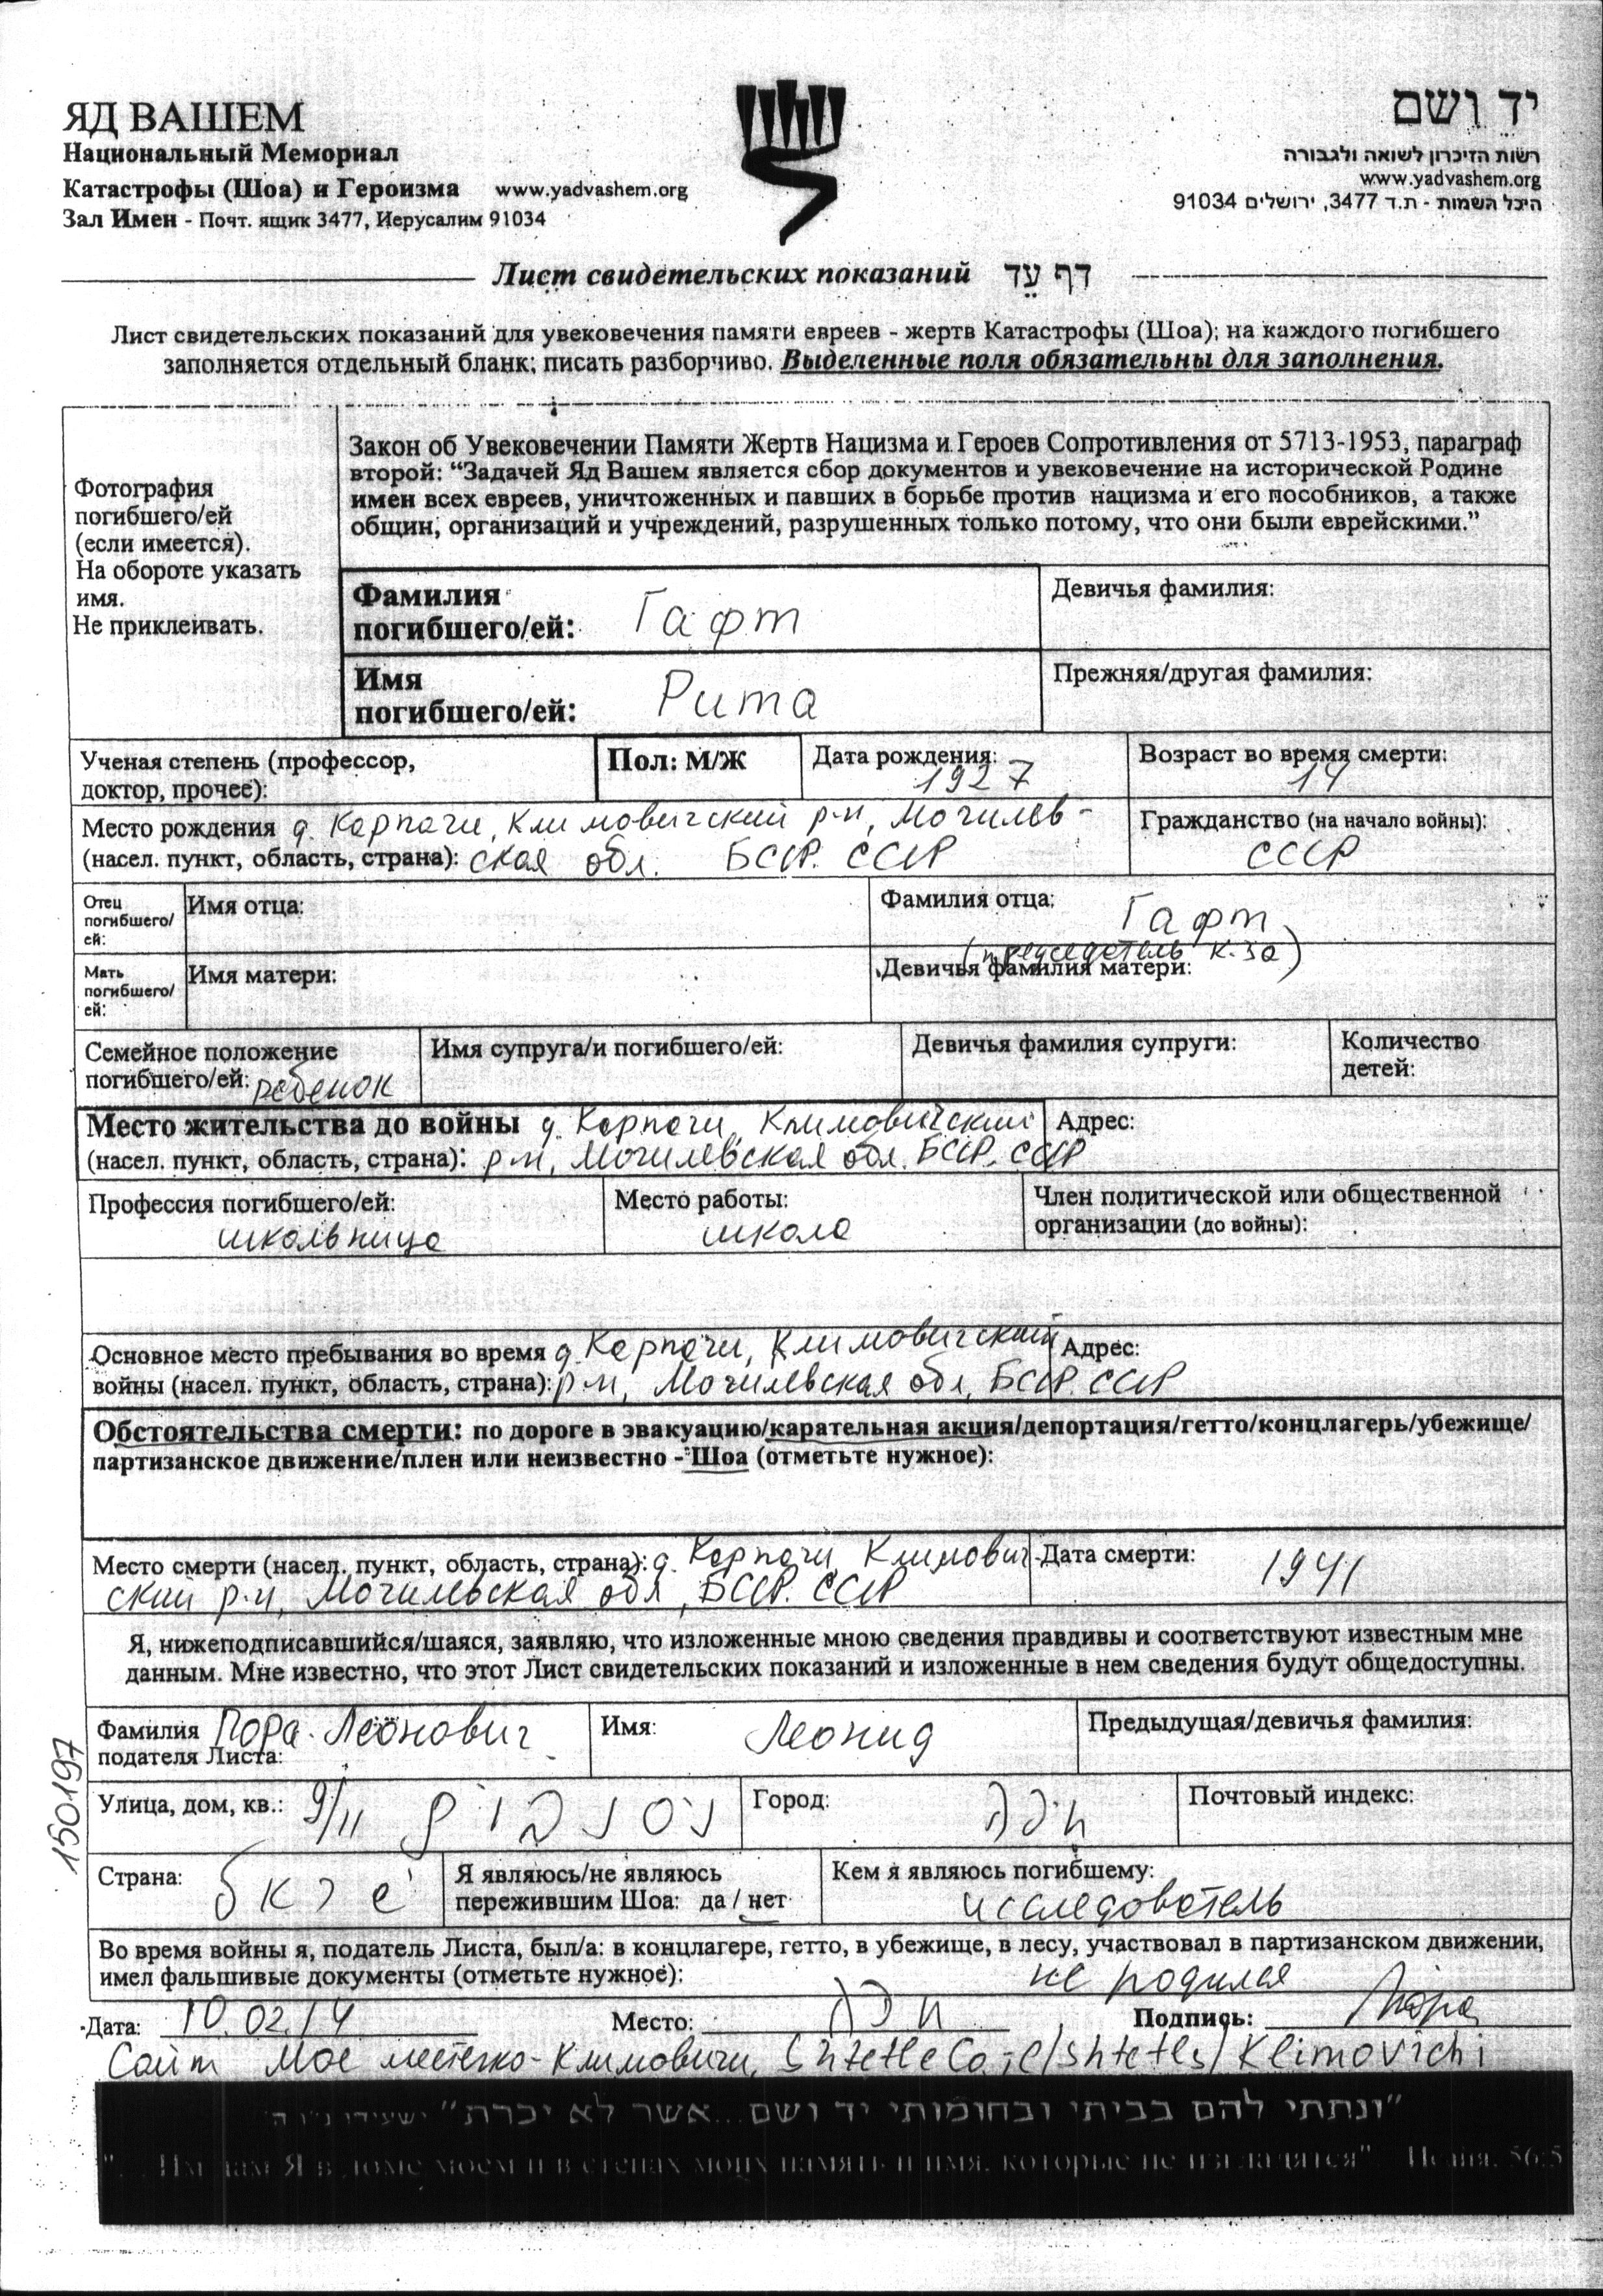 ЯД ВАШЕМ
Национальный Мемориал
Катастрофы (Шоа) и Героизма www.yadvashem.org
Зал Имен - Почт. ящик 3477, Иерусалим 91034
יד ושם
רשות הזיכרון לשואה ולגבורה
www.yadvashem.org
היכל השמות - ת.ד 3477, ירושלים 91034
Лист свидетельских показаний דף עֵד
Лист свидетельских показаний для увековечения памяти евреев - жертв Катастрофы (Шоа); на каждого погибшего
заполняется отдельный бланк; писать разборчиво. Выделенные поля обязательны для заполнения.
Фотография
погибшего/ей
(если имеется).
На обороте указать
имя.
Не приклеивать.
Закон об Увековечении Памяти Жертв Нацизма и Героев Сопротивления от 5713-1953, параграф
второй: “Задачей Яд Вашем является сбор документов и увековечение на исторической Родине
имен всех евреев, уничтоженных и павших в борьбе против нацизма и его пособников, а также
общин, организаций и учреждений, разрушенных только потому, что они были еврейскими.”
Фамилия
погибшего/ей: Гафт
Девичья фамилия:
Имя
погибшего/ей: Рита
Прежняя/другая фамилия:
Ученая степень (профессор,
доктор, прочее):
Пол: М/Ж
Дата рождения:
1927
Возраст во время смерти:
14
Место рождения д. Карпачи, Климовичский р-н, Могилев-
(насел. пункт, область, страна): ская обл. БССР. СССР
Гражданство (на начало войны):
СССР
Отец
погибшего/
ей:
Имя отца:
Фамилия отца: Гафт
(председатель к-за)
Мать
погибшего/
ей:
Имя матери:
Девичья фамилия матери:
Семейное положение
погибшего/ей: ребенок
Имя супруга/и погибшего/ей:
Девичья фамилия супруги:
Количество
детей:
Место жительства до войны д. Карпачи, Климовичский
(насел. пункт, область, страна): р-н, Могилевская обл. БССР. СССР
Адрес:
Профессия погибшего/ей:
школьница
Место работы:
школа
Член политической или общественной
организации (до войны):
Основное место пребывания во время д. Карпачи, Климовичский
войны (насел. пункт, область, страна): р-н, Могилевская обл, БССР. СССР
Адрес:
Обстоятельства смерти: по дороге в эвакуацию/карательная акция/депортация/гетто/концлагерь/убежище/
партизанское движение/плен или неизвестно - Шоа (отметьте нужное):
Место смерти (насел. пункт, область, страна): д. Карпачи, Климович
ский р-н, Могилевская обл, БССР. СССР
Дата смерти: 1941
Я, нижеподписавшийся/шаяся, заявляю, что изложенные мною сведения правдивы и соответствуют известным мне
данным. Мне известно, что этот Лист свидетельских показаний и изложенные в нем сведения будут общедоступны.
Фамилия Пора-Леонович
податела Листа:
Имя: Леонид
Предыдущая/девичья фамилия:
150197
Улица, дом, кв.: 9/11
Город:
Почтовый индекс:
Страна:
Я являюсь/не являюсь
пережившим Шоа: да / нет
Кем я являюсь погибшему:
исследователь
Во время войны я, податель Листа, был/а: в концлагере, гетто, в убежище, в лесу, участвовал в партизанском движении,
имел фальшивые документы (отметьте нужное): не родился
Дата: 10.02.14 Место: Подпись: Пора
Сайт Мое местечко-Климовичи, shtetle.co.il/shtetls/Klimovichi
"ונתתי להם בביתי ובחומותי יד ושם...אשר לא יכרת" ישעיהו נ"ו ה'
"...Им дам Я в доме моем и в стенах моих память и имя, которые не изгладятся" Исаия, 56:5